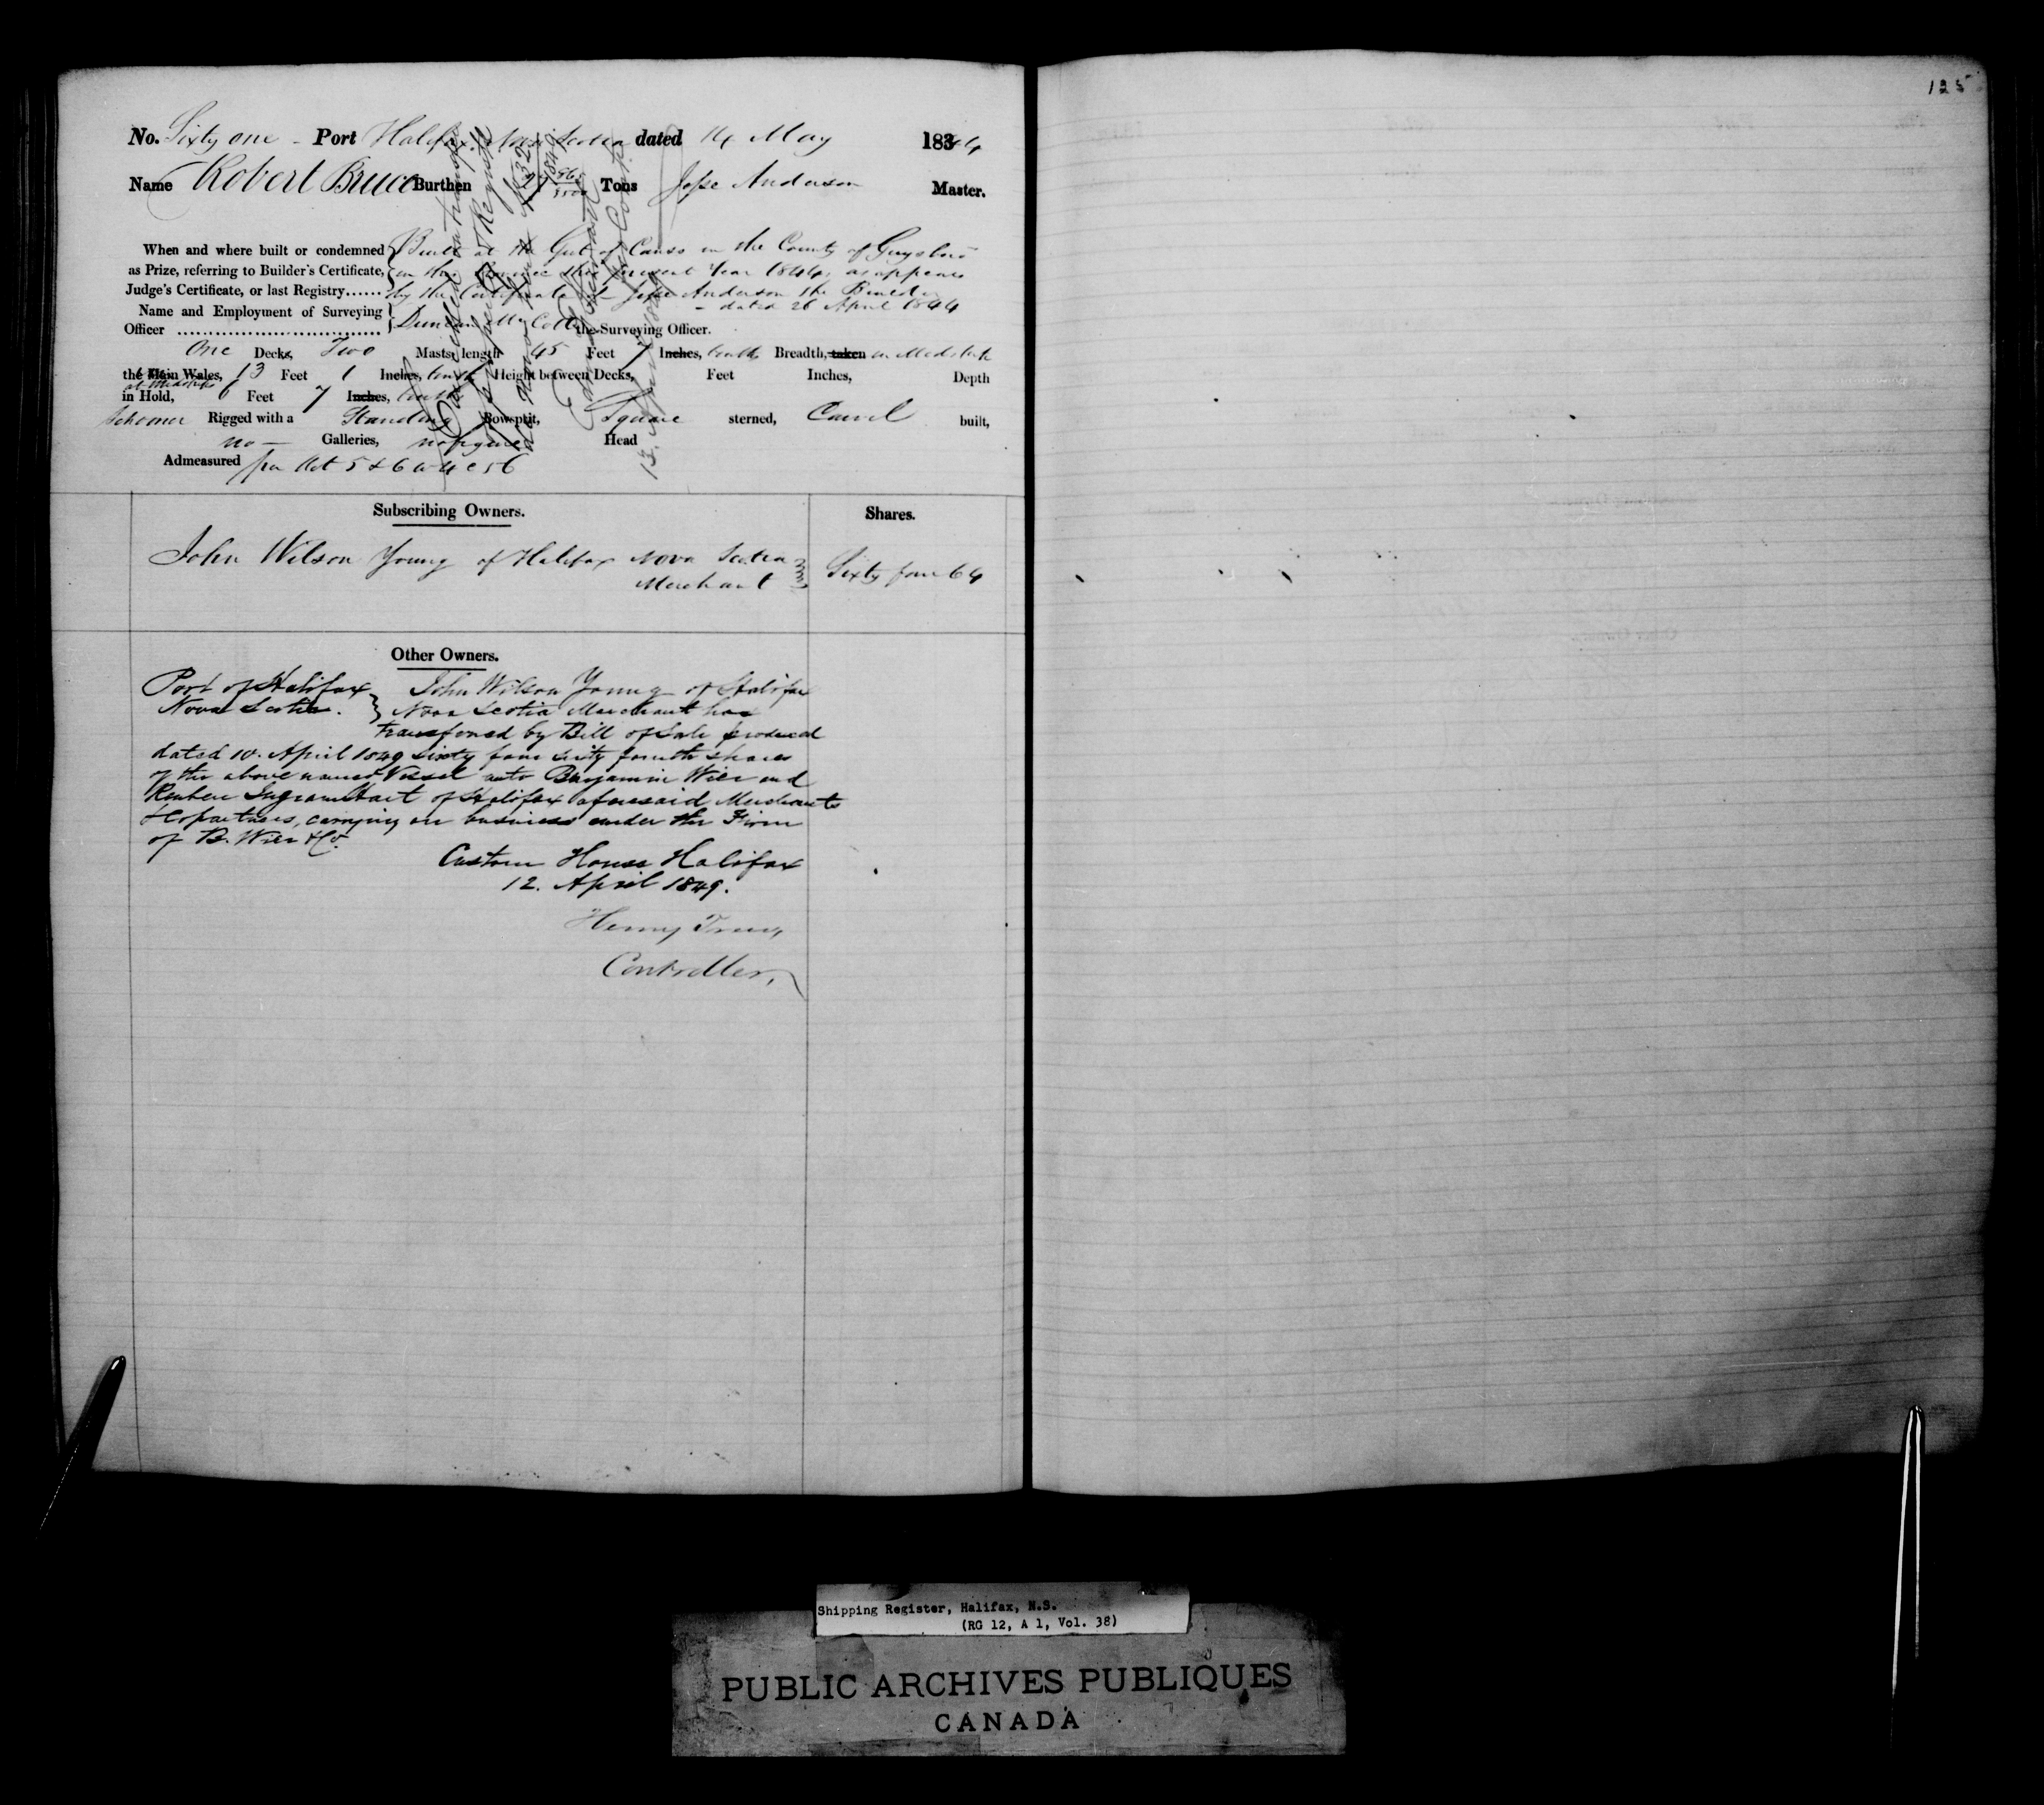 125
No. Sixty one - Port Halifax Nova Scotia dated 14 May 1844
Name Robert Bruce Burthen Tons Jesse Anderson Master.
When and where built or condemned Built at the Gut of Canso in the County of Guysboro
as Prize, referring to Builder's Certificate, in the Province the present Year 1844 as appears
Judge's Certificate, or last Registry...... by the Certificate of Jesse Anderson the Builder
- dated 26 April 1844
Name and Employment of Surveying
Officer Duncan Mc Coll the Surveying Officer.
One Decks, Two Masts, length 45 Feet 7 Inches, tenths Breadth, taken in Midships
the Main Wales, 13 Feet 1 Inches, tenth Height between Decks, Feet Inches, Depth
at Midships
in Hold, 6 Feet 7 Inches, tenths
Schooner Rigged with a Standing Bowsprit, Square sterned, Carvel built,
no - Galleries, no figure Head
Admeasured per Act 5 & 6 W 4 C 56
Subscribing Owners. Shares.
John Wilson Young of Halifax Nova Scotia
Merchant Sixty four 64
Other Owners.
Port of Halifax John Wilson Young of Halifax
Nova Scotia. Nova Scotia Merchant has
transferred by Bill of Sale produced
dated 10. April 1849 sixty four sixty fourth shares
of the above named Vessel unto Benjamin Wier and
Reuben Ingram Hart of Halifax aforesaid Merchants
& Copartners, carrying on business under the Firm
of B. Wier & Co.
Custom House Halifax
12. April 1849.
Henry
Controller.
Shipping Register, Halifax, N.S.
(RG 12, A 1, Vol. 38)
PUBLIC ARCHIVES PUBLIQUES
CANADA